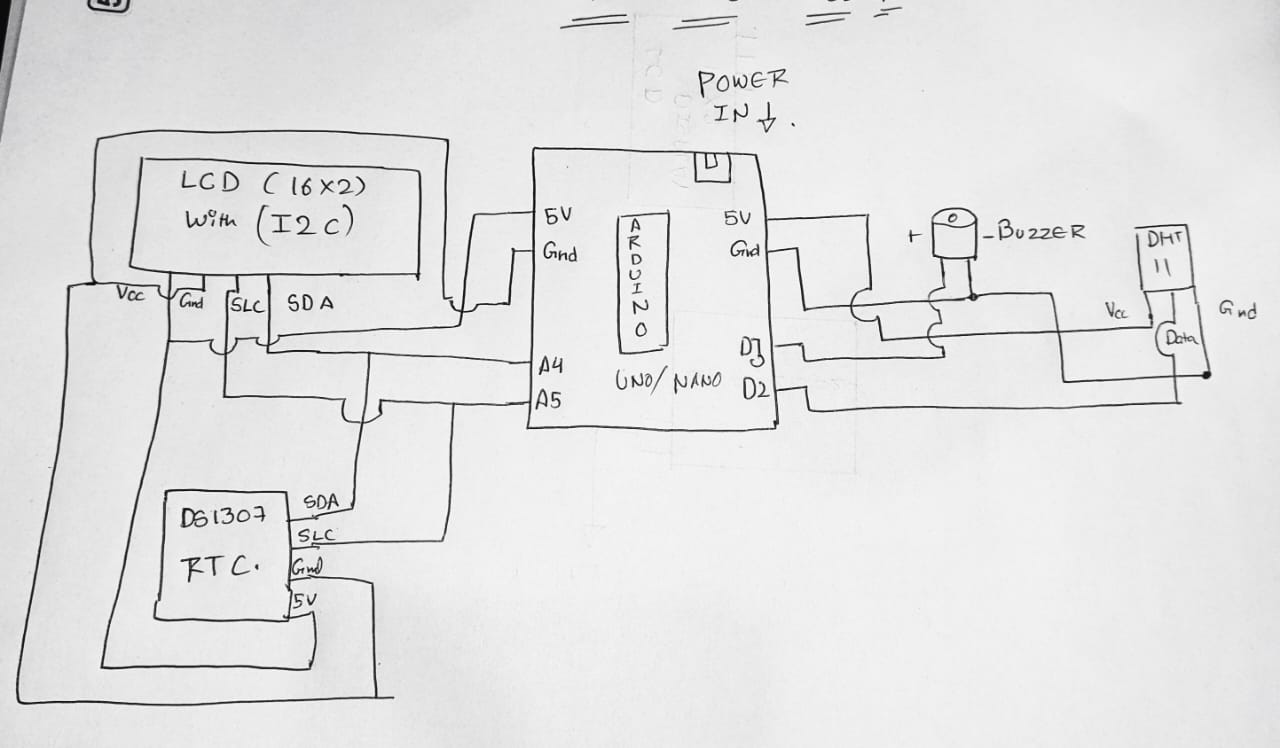 POWER
IN ↓.
LCD (16x2)
With (I2C)
Vcc
Gnd
SLC
SDA
5V
Gnd
A4
A5
ARDUINO
UNO/NANO
5V
Gnd
D3
D2
+
- BUZZER
DHT
11
Vcc
Data
Gnd
DS1307
RTC.
SDA
SLC
Gnd
5V